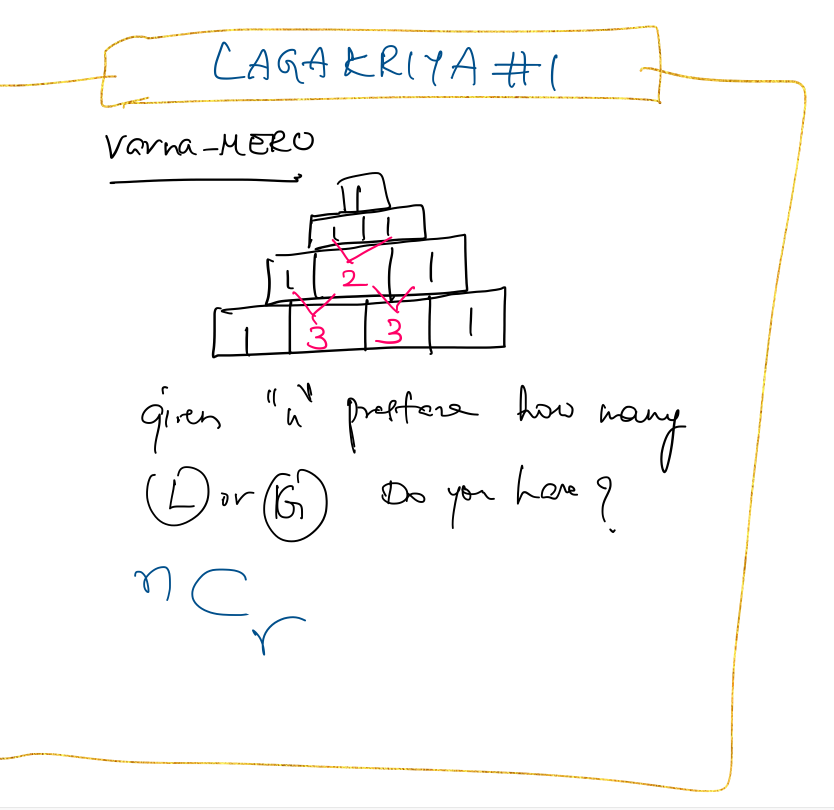 LAGAKRIYA #1
Varna-MERO
1
1 1
1 2 1
1 3 3 1
given "n" how many
L or G Do you have?
nCr